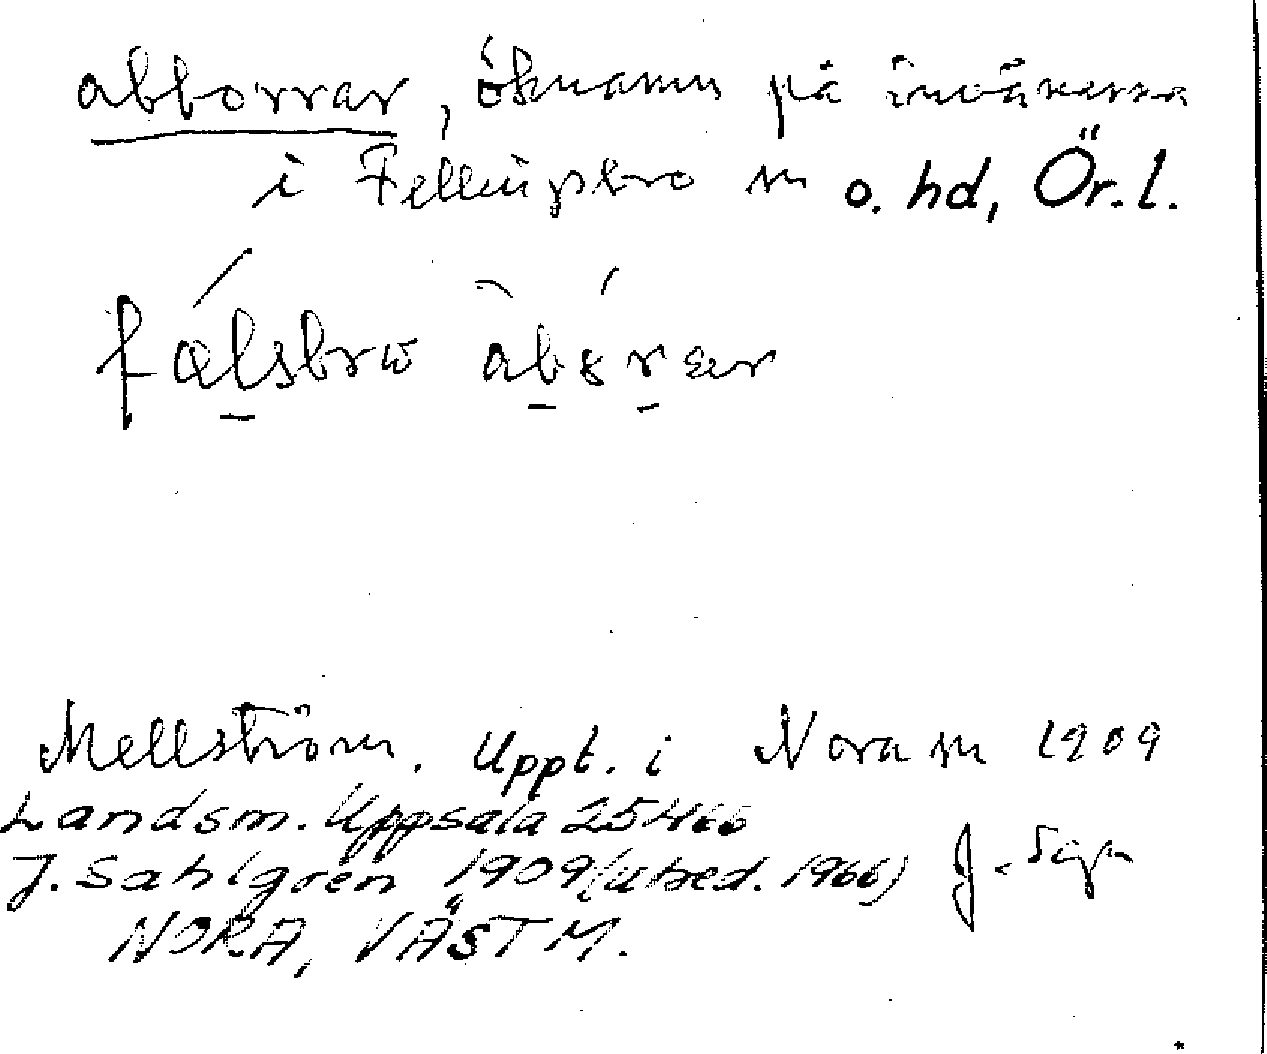 abborrar, öknamn på invånarna
i Fellingsbro sn o. hd, Ör. l.
fálsbrω àbɤ́rar
Mellström. Uppt. i Nora sn 1909
Landsm. Uppsala 25466
J. Sahlgren 1909 (utred. 1966) J. Sgn
NORA, VÄSTM.